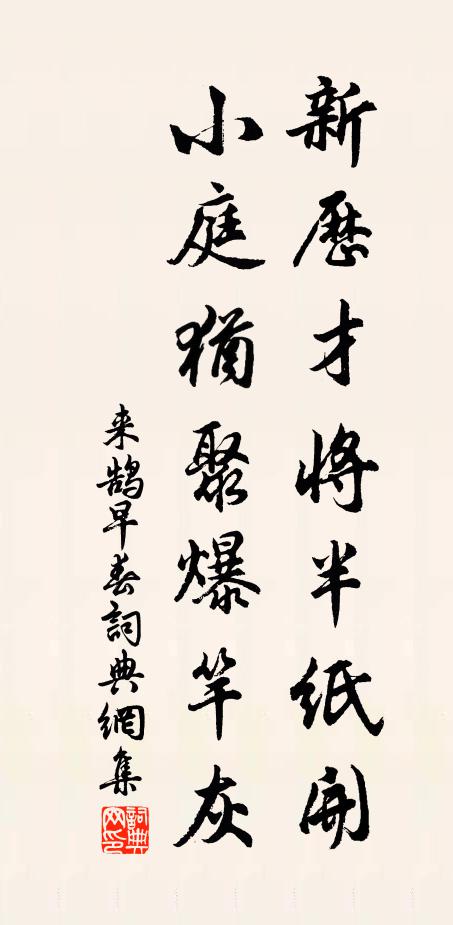 新歷才將半纸開
小庭猶聚爆竿灰
来鹄早春詞典網集
詞典网印